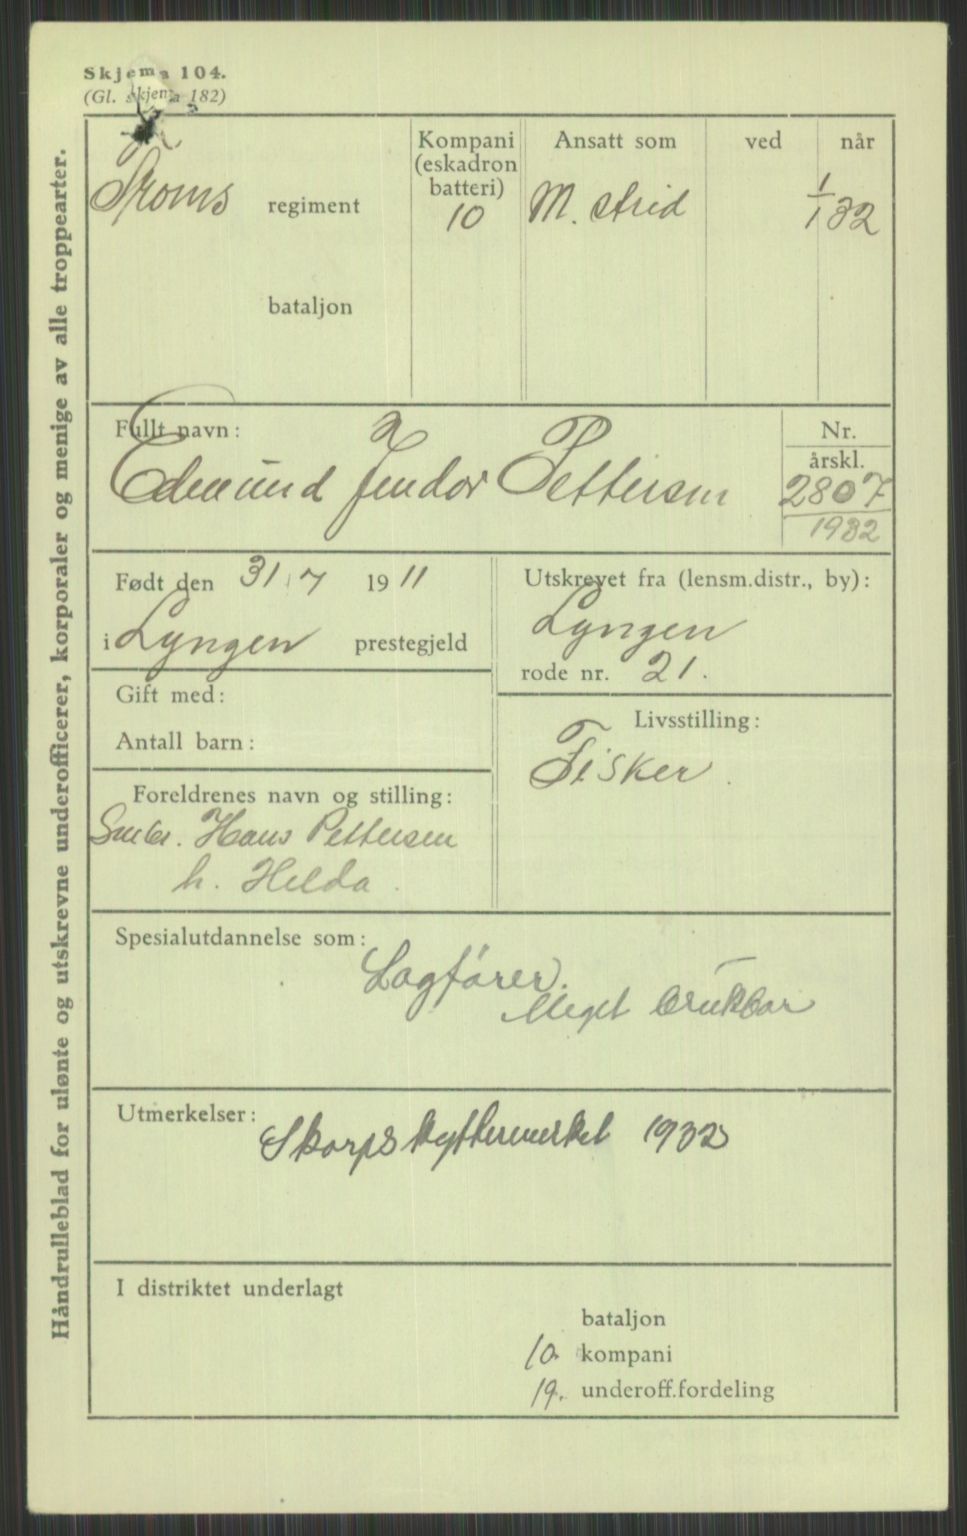 Skjema 104.
(Gl. skjema 182)
Håndrulleblad for ulønte og utskrevne underofficerer, korporaler og menige av alle troppearter.
Troms regiment
bataljon
Kompani (eskadron batteri)
10
Ansatt som
M. strid
ved
når
1/1 32
Fullt navn:
Edmund Jendor Pettersen
Nr.
årskl.
2807
1932
Født den 31/7 1911
i Lyngen prestegjeld
Utskrevet fra (lensm.distr., by):
Lyngen
rode nr. 21.
Gift med:
Antall barn:
Livsstilling:
Fisker.
Foreldrenes navn og stilling:
Smbr. Hans Pettersen
h. Helda.
Spesialutdannelse som:
Lagfører.
Meget brukbar
Utmerkelser:
Skarpskyttermerket 1932
I distriktet underlagt
bataljon
10. kompani
19. underoff.fordeling